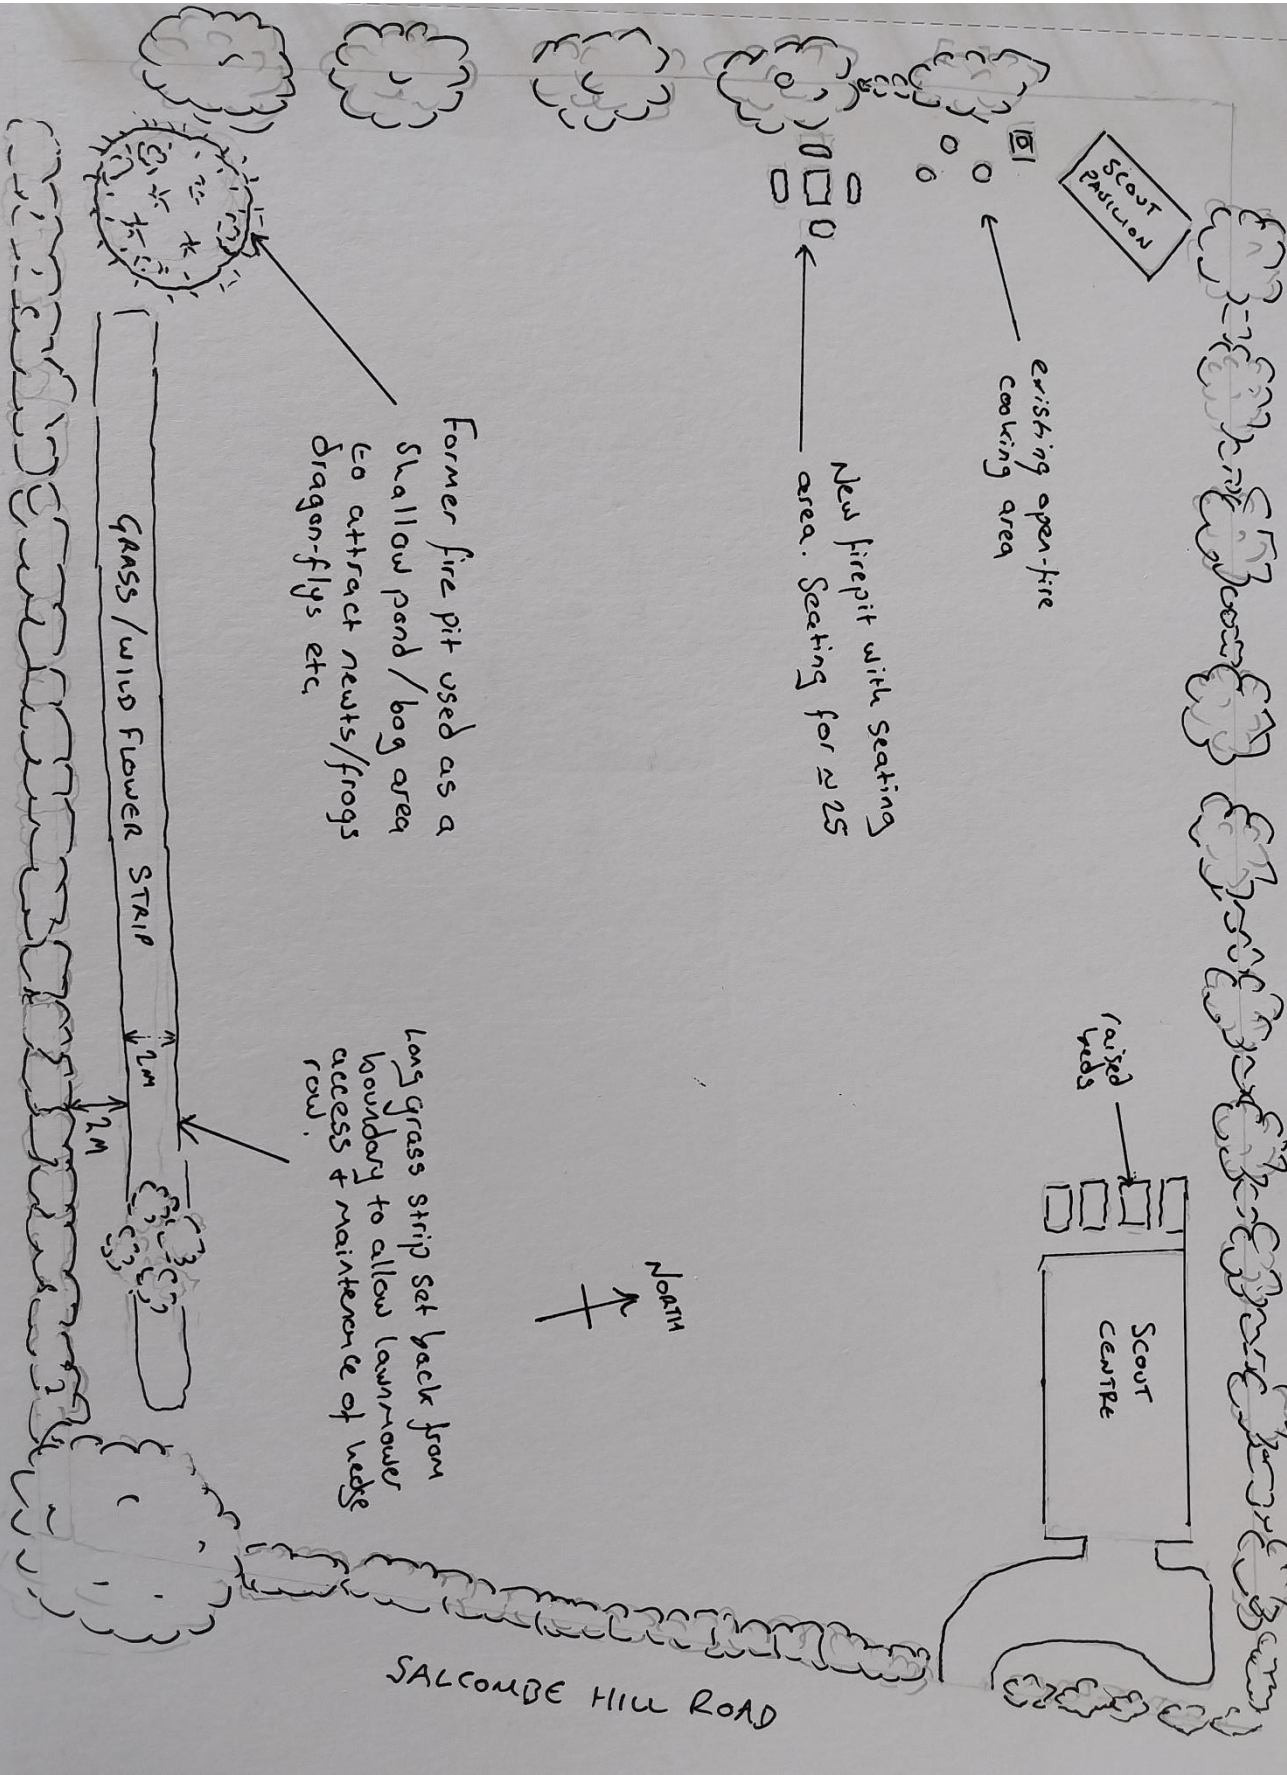 SCOUT
PAVILION
existing open-fire
cooking area
New firepit with seating
area. Seating for ≃ 25
Former fire pit used as a
shallow pond/bog area
to attract newts/frogs
dragon-flys etc.
GRASS/WILD FLOWER STRIP
2M
2M
Long grass strip set back from
boundary to allow lawnmower
access + maintenance of hedge
row.
raised
beds
NORTH
SCOUT
CENTRE
SALCOMBE HILL ROAD